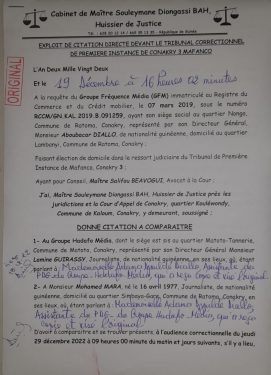 Cabinet de Maître Souleymane Diongassi BAH,
Huissier de Justice
ORIGINAL
EXPLOIT DE CITATION DIRECTE DEVANT LE TRIBUNAL CORRECTIONNEL
DE PREMIERE INSTANCE DE CONAKRY 3 MAFANCO
L'An Deux Mille Vingt Deux
Et le 19 Décembre à 16 heures 02 minutes
A la requête du Groupe Fréquence Média (GFM) immatriculé au Registre du
Commerce et du Crédit mobilier, le 07 mars 2019, sous le numéro
RCCM/GN.KAL.2019.B.091259, ayant son siège social au quartier Nongo,
Commune de Ratoma, Conakry, représenté par son Directeur Général,
Monsieur Aboubacar DIALLO, de nationalité guinéenne, domicilié au quartier
Lambanyi, Commune de Ratoma, Conakry ;
Faisant élection de domicile dans le ressort judiciaire du Tribunal de Première
Instance de Mafanco, Conakry 3 ;
Ayant pour Conseil, Maître Salifou BEAVOGUI, Avocat à la Cour ;
J'ai, Maître Souleymane Diongassi BAH, Huissier de Justice près les
juridictions et la Cour d'Appel de Conakry, quartier Koulewondy,
Commune de Kaloum, Conakry, y demeurant, soussigné ;
DONNE CITATION A COMPARAITRE
1- Au Groupe Hadafo Média, dont le siège est sis au quartier Matoto-Tannerie,
Commune de Matoto, Conakry, représenté par son Directeur Général Monsieur
Lamine GUIRASSY, Journaliste, de nationalité guinéenne, en ses lieux, où, étant
parlant à Mademoiselle Adama Diallo Assistante du
PDG du Groupe Hadafo Médias, qui a reçu copie et visé l'original.
2- A Monsieur Mohamed MARA, né le 16 avril 1977, Journaliste, de nationalité
guinéenne, domicilié au quartier Simbaya-Gare, Commune de Ratoma, Conakry,
en ses lieux, où, étant parlant à Mademoiselle Adama Diallo
Assistante du PDG du Groupe Hadafo Médias, qui a reçu
copie et visé l'original.
D'avoir à comparaitre et se trouver présents, à l'audience correctionnelle du jeudi
29 décembre 2022 à 09 heures 00 minute du matin et jours suivants, s'il y a lieu,